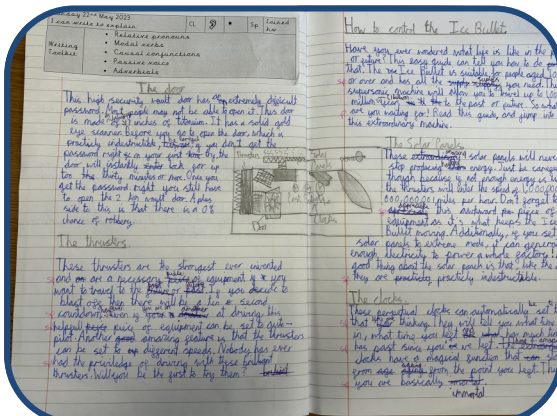 Monday 22nd May 2023
I can write to explain
CL
Sp
Joined hw
Writing Toolkit:
• Relative pronouns
• Modal verbs
• Causal conjunctions
• Passive voice
• Adverbials
The door
This high security vault door has an extremely difficult
password. people may not be able to open it. This door
is made of inches of titanium. It has a solid gold
eye scanner. Before you go to open the door, which is
practicly indestructible, if you don't get the
password right on your first try, the
door will instantly lock for up
too the thirty minutes or more. Once you
get the password right you still have
to open the 2 ton vault door. A plus
side to this is that there is a 0%
chance of robbers.
Thrusters
Solar
Door
Clocks
The thrusters
These thrusters are the strongest ever invented
and are a necessary of equipment if you
want to travel to the future or past. If you decide to
blast off then there will be a ten second
countdown. at driving this
helpful piece of equipment can be set to auto-
pilot. Another amazing feature is that the thrusters
can be set to different speeds. Nobody has ever
had the priviledge of driving with these brilliant
thrusters. Will you be the first to try them?
How to control the Ice Bullet
Have you ever wondered what life is like in the
or future? This easy guide can tell you how to do
that. The Ice Bullet is suitable for people aged
or over and has all the you need. This
supersonic machine will allow you to travel up to
million years to the past or future. So what
are you waiting for? Read this guide, and jump into
this extraordinary machine.
The Solar Panels
These solar panels will never
stop producing energy. Just be careful
though because if not enough energy is
the thrusters will enter the speed of
miles per hour. Don't forget to
this awkward piece of
equipment as it's what keeps the Ice
Bullet moving. Additionally, if you set
solar panels to extreme mode, it can generate
enough electricity to power a whole factory! A
good thing about the solar panel is that like the
they are practicly indestructible.
The clocks
These perpetual clocks can automatically set
that thinking. They will tell you what time
in, what time you and how much time
has past since you
clocks have a magical function that
from from the point you This
you are basically
immortal